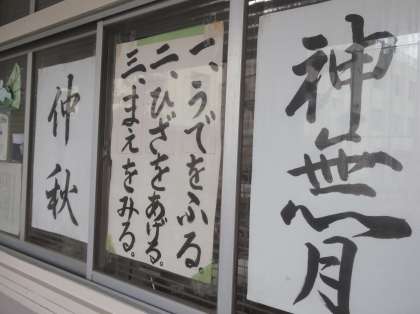 神無月
一、うでをふる。
二、ひざをあげる。
三、まえをみる。
仲秋